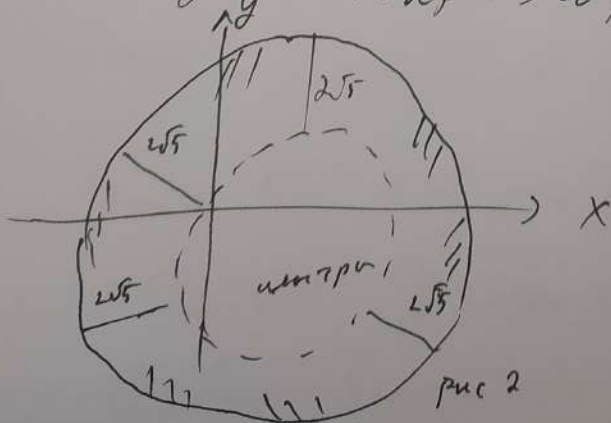 y
2√5
2√5
X
центры
2√5
2√5
рис 2